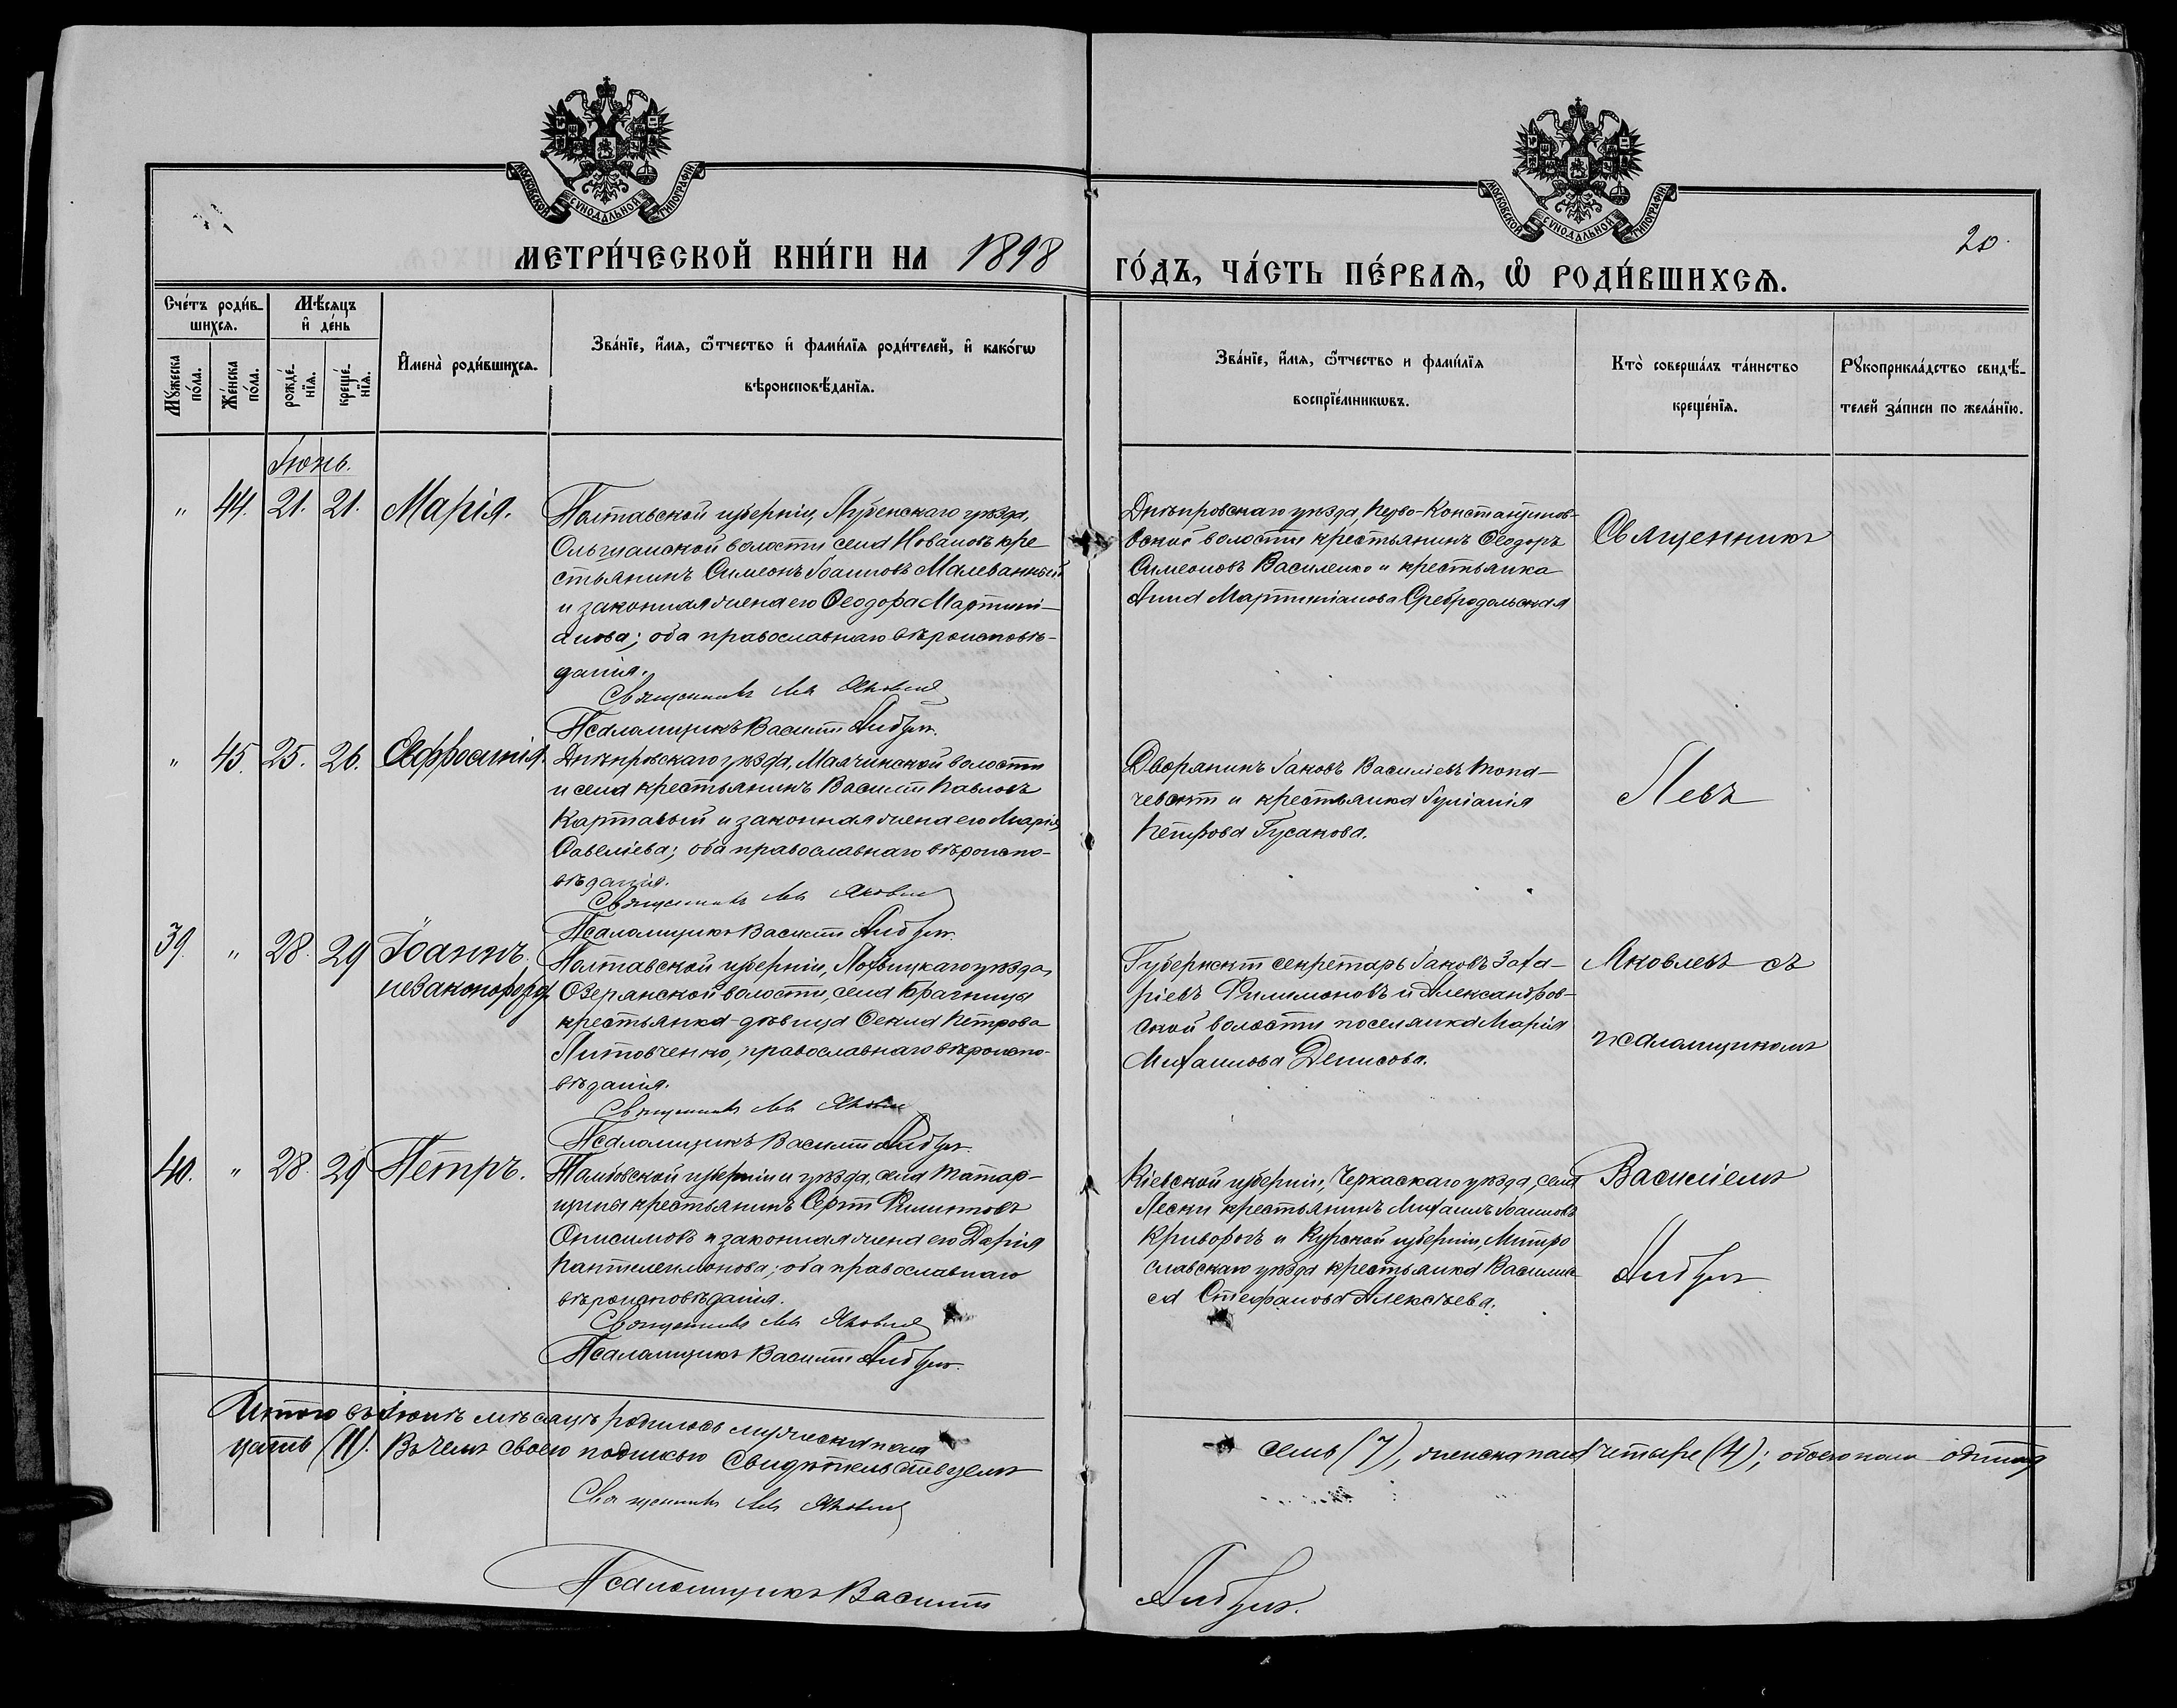 МОСКОВСКОЙ СѴНОДАЛЬНОЙ ТИПОГРАФІИ
МОСКОВСКОЙ СѴНОДАЛЬНОЙ ТИПОГРАФІИ
20.
МЕТРИ́ЧЕСКОЙ КНИ́ГИ НА 1898 ГО́ДЪ, ЧА́СТЬ ПЕ́РВАѦ, Ѡ҆ РОДИ́ВШИХСѦ.
Сче́тъ роди́вшихсѧ.
Мѣ́сѧцъ и҆ де́нь
Мꙋ́жеска по́ла.
Же́нска по́ла.
рожде́нїѧ.
креще́нїѧ.
И҆мена̀ роди́вшихсѧ.
Зва́нїе, и҆́мѧ, ѻ҆́тчество и҆ фами́лїѧ роди́телей, и҆ како́гѡ
вѣроисповѣ́данїѧ.
Зва́нїе, и҆́мѧ, ѻ҆́тчество и фами́лїѧ
воспрїе́мникѡвъ.
Кто̀ соверша́лъ та́инство
креще́нїѧ.
Рꙋкоприкла́дство свидѣ́телей за́писи по жела́нїю.
Іюнь.
" 44. 21. 21. Марія.
Полтавской губерніи, Лубенскаго уѣзда,
Ольшанской волости, села кре
стьянинъ Симеонъ Іоанновъ Малеванный
и законная жена его Ѳеодора Мартині-
анова; оба православнаго вѣроисповѣ-
данія.
Священникъ Левъ Яковлевъ
Псаломщикъ Василій
Днѣпровскаго уѣзда, Перво-Константинов-
вской волости крестьянинъ Ѳеодоръ
Симеоновъ Василенко и крестьянка
Анна Мартиніанова Сребродольская
Священникъ
" 45. 25. 26. Евфросинія.
Днѣпровскаго уѣзда, Маячинской волости
и села крестьянинъ Василій Павловъ
Картавый и законная жена его Марія
Савеліева; оба православнаго вѣроиспо-
вѣданія.
Священникъ Левъ Яковлевъ
Псаломщикъ Василій
Дворянинъ Іаковъ Василіевъ
и крестьянка Іуліанія
Петрова Гусакова.
Левъ
39. " 28. 29 Іоаннъ.
незаконорожд.
Полтавской губерніи, Лохвицкаго уѣзда,
Озерянской волости, села Брагинцы
крестьянка-дѣвица Ѳекла Петрова
Литовченко, православнаго вѣроиспо-
вѣданія.
Священникъ Левъ Яковлевъ
Псаломщикъ Василій
Губернскій секретарь Іаковъ Заха-
ріевъ Филимоновъ и Александров-
ской волости поселянка Марія
Михаилова Денисова.
Яковлевъ съ
псаломщикомъ
40. " 28. 29 Петръ.
Тамбовской губерніи и уѣзда, села Татар-
щины крестьянинъ Сергій Филипповъ
Онисимовъ и законная жена его Дарія
Пантелеимонова; оба православнаго
вѣроисповѣданія.
Священникъ Левъ Яковлевъ
Псаломщикъ Василій
Кіевской губерніи, Черкаскаго уѣзда, села
Лески крестьянинъ Михаилъ Іоанновъ
Криворогъ и Курской губерніи, Митро
славскаго уѣзда крестьянка Василис-
са Стефанова Алексѣева.
Василіемъ
Итого въ Іюнѣ мѣсяцѣ родилось мужеска пола семь (7), женска пола четыре (4); обоего пола одинад
цать (11). Въ чемъ своею подписью свидѣтельствуемъ
Священникъ Левъ Яковлевъ
Псаломщикъ Василій